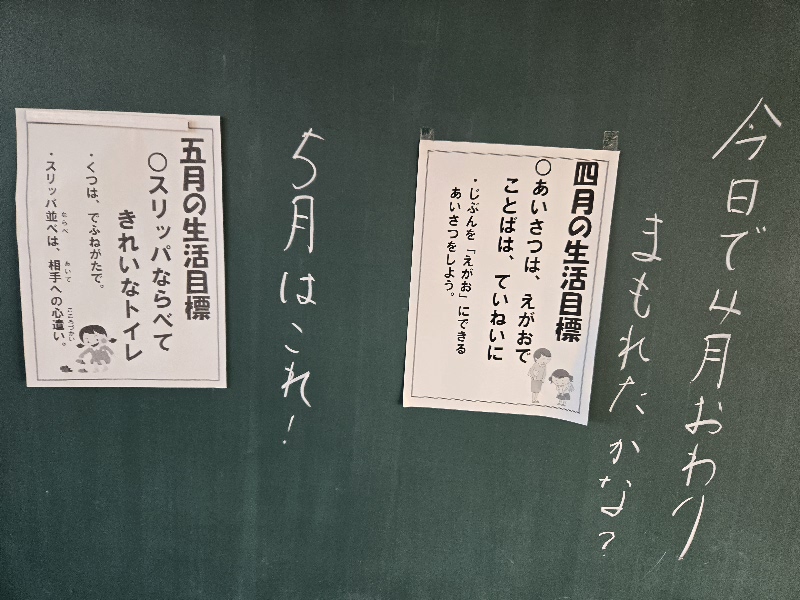 今日で4月おわり
まもれたかな？
四月の生活目標
○あいさつは、えがおで
ことばは、ていねいに
・じぶんを「えがお」にできる
あいさつをしよう。
5月はこれ！
五月の生活目標
○スリッパならべて
きれいなトイレ
・くつは、でふねがたで。
・スリッパ並べは、相手への心遣い。
ならべ
あいて
こころづかい